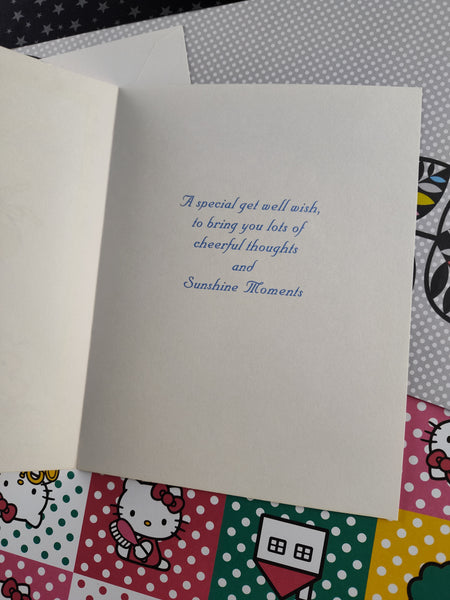 A special get well wish,
to bring you lots of
cheerful thoughts
and
Sunshine Moments